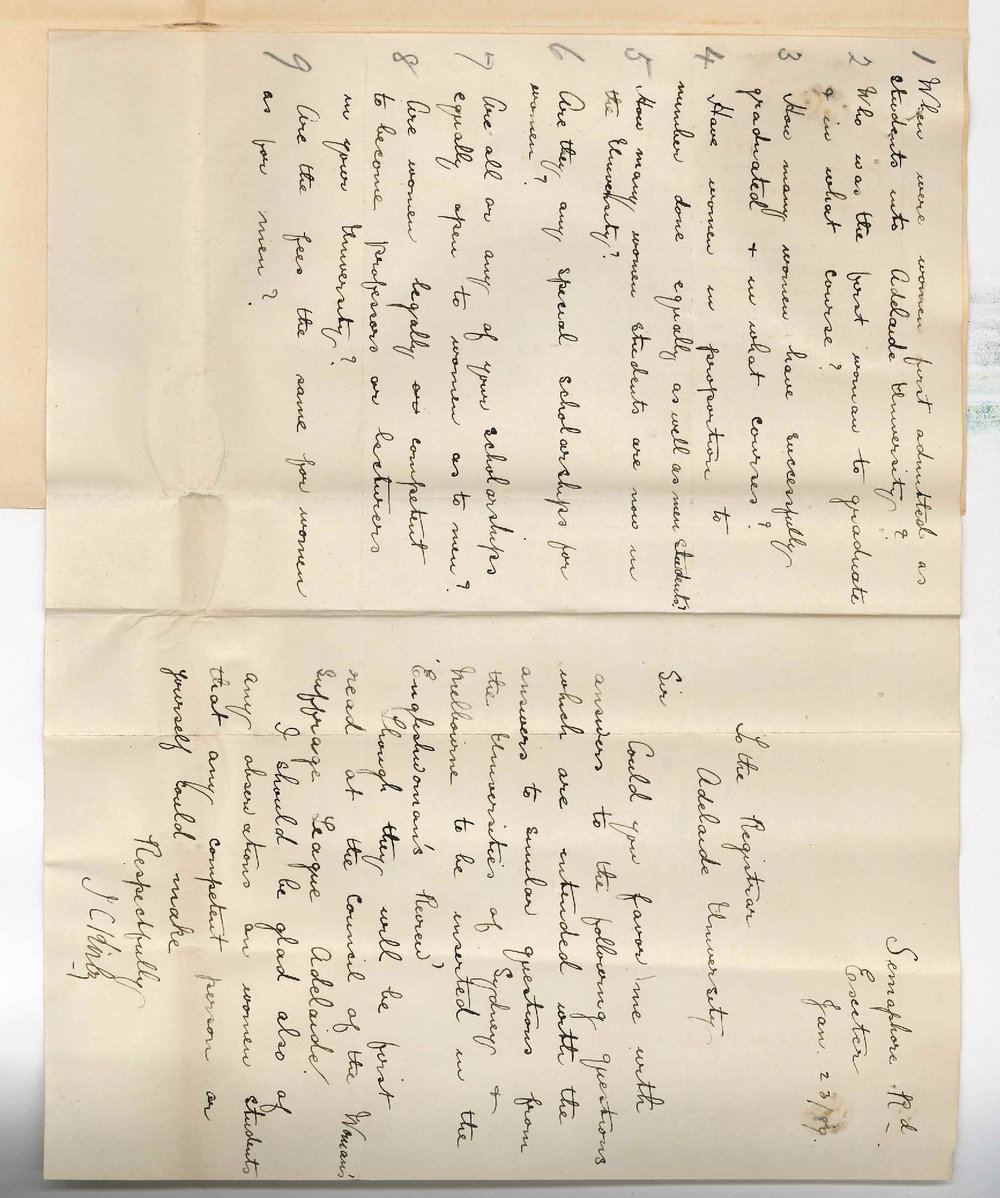 Semaphore Rd.
Exeter
Jan. 23/89.
To the Registrar
Adelaide University
Sir
Could you favor me with
answers to the following questions
which are intended with the
answers to similar questions from
the Universities of Sydney +
Melbourne to be inserted in the
'Englishwoman's Review'
Though they will be first
read at the Council of the Woman's
Suffrage League Adelaide.
I should be glad also of
any observations on women students
that any competent person or
yourself could make
Respectfully
J C Kirby
1 When were women first admitted as
students into Adelaide University?
2 Who was the first woman to graduate
& in what course?
3 How many women have successfully
graduated + in what courses?
4 Have women in proportion to
number done equally as well as men students?
5 How many women students are now in
the University?
6 Are they any special scholarships for
women?
7 Are all or any of your scholarships
equally open to women as to men?
8 Are women legally or competent
to become professors or lecturers
in your University?
9 Are the fees the same for women
as for men?